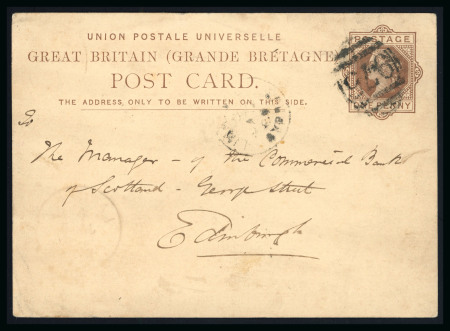 UNION POSTALE UNIVERSELLE
GREAT BRITAIN (GRANDE BRETAGNE)
POST CARD.
THE ADDRESS ONLY TO BE WRITTEN ON THIS SIDE.
POSTAGE
ONE PENNY
To
The Manager - of the Commercial Bank
of Scotland - George Street
Edinburgh